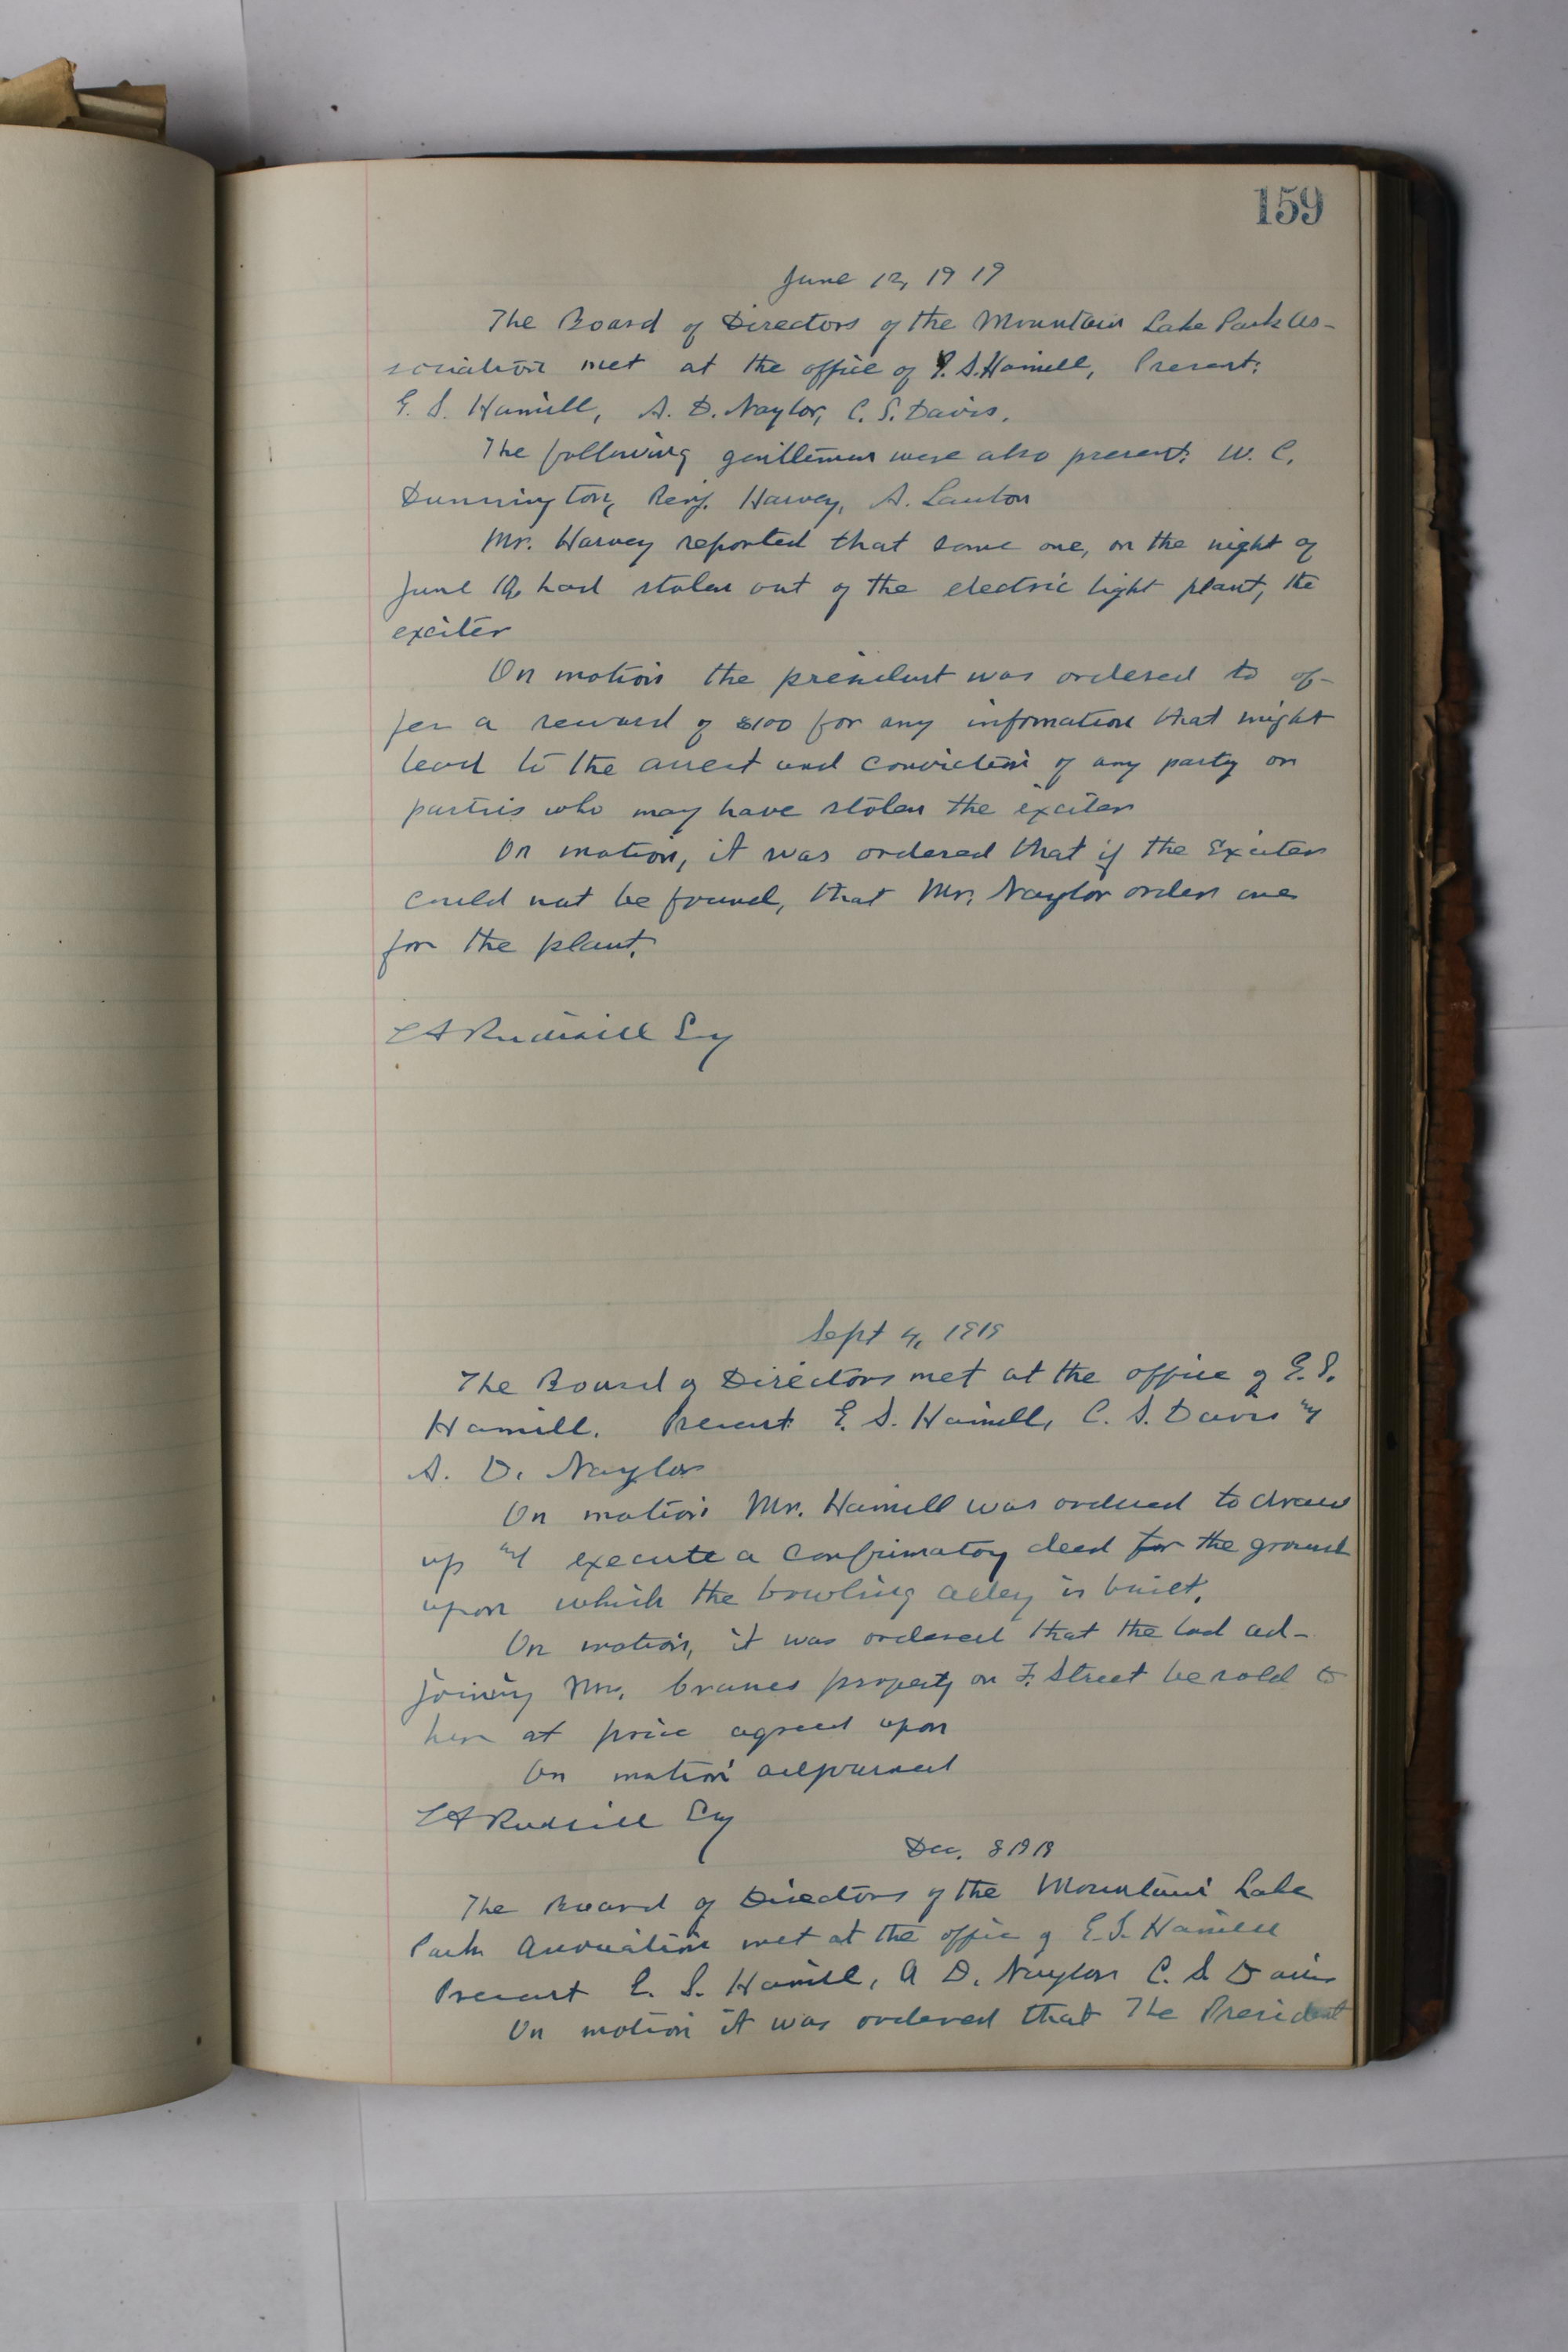 159
June 12, 1919
The Board of Directors of the Mountain Lake Park As-
sociation met at the office of E. S. Hamill, Present:
E. S. Hamill, A. D. Naylor, C. S. Davis.
The following gentlemen were also present: W. C.
Dunnington, Benj. Harvey, A. Lawton
Mr. Harvey reported that some one, on the night of
June had stolen out of the electric light plant, the
exciter
On motion the president was ordered to of-
fer a reward of $100 for any infomation that might
lead to the arrest and conviction of any party or
parties who may have stolen the exciter
On motion, it was ordered that if the Exciter
could not be found, that Mr. Naylor order one
for the plant.
L A Rudisill Sy
Sept 4, 1919
The Board of Directors met at the office of E. S.
Hamill. Present E. S. Hamill, C. S. Davis and
A. D. Naylor
On motion Mr. Hamill was ordered to draw
up and execute a confirmatory deed for the ground
upon which the bowling alley is built.
On motion, it was ordered that the lod ad-
joining property on F. Street be sold to
her at price agreed upon
On motion adjourned
L A Rudisill Sy
Dec. 8 1919
The Board of Directors of the Mountain Lake
Park Association met at the offic of E. S. Hamill
Present E. S. Hamill, A D. Naylor C. S. Davis
On motion it was ordered that The President